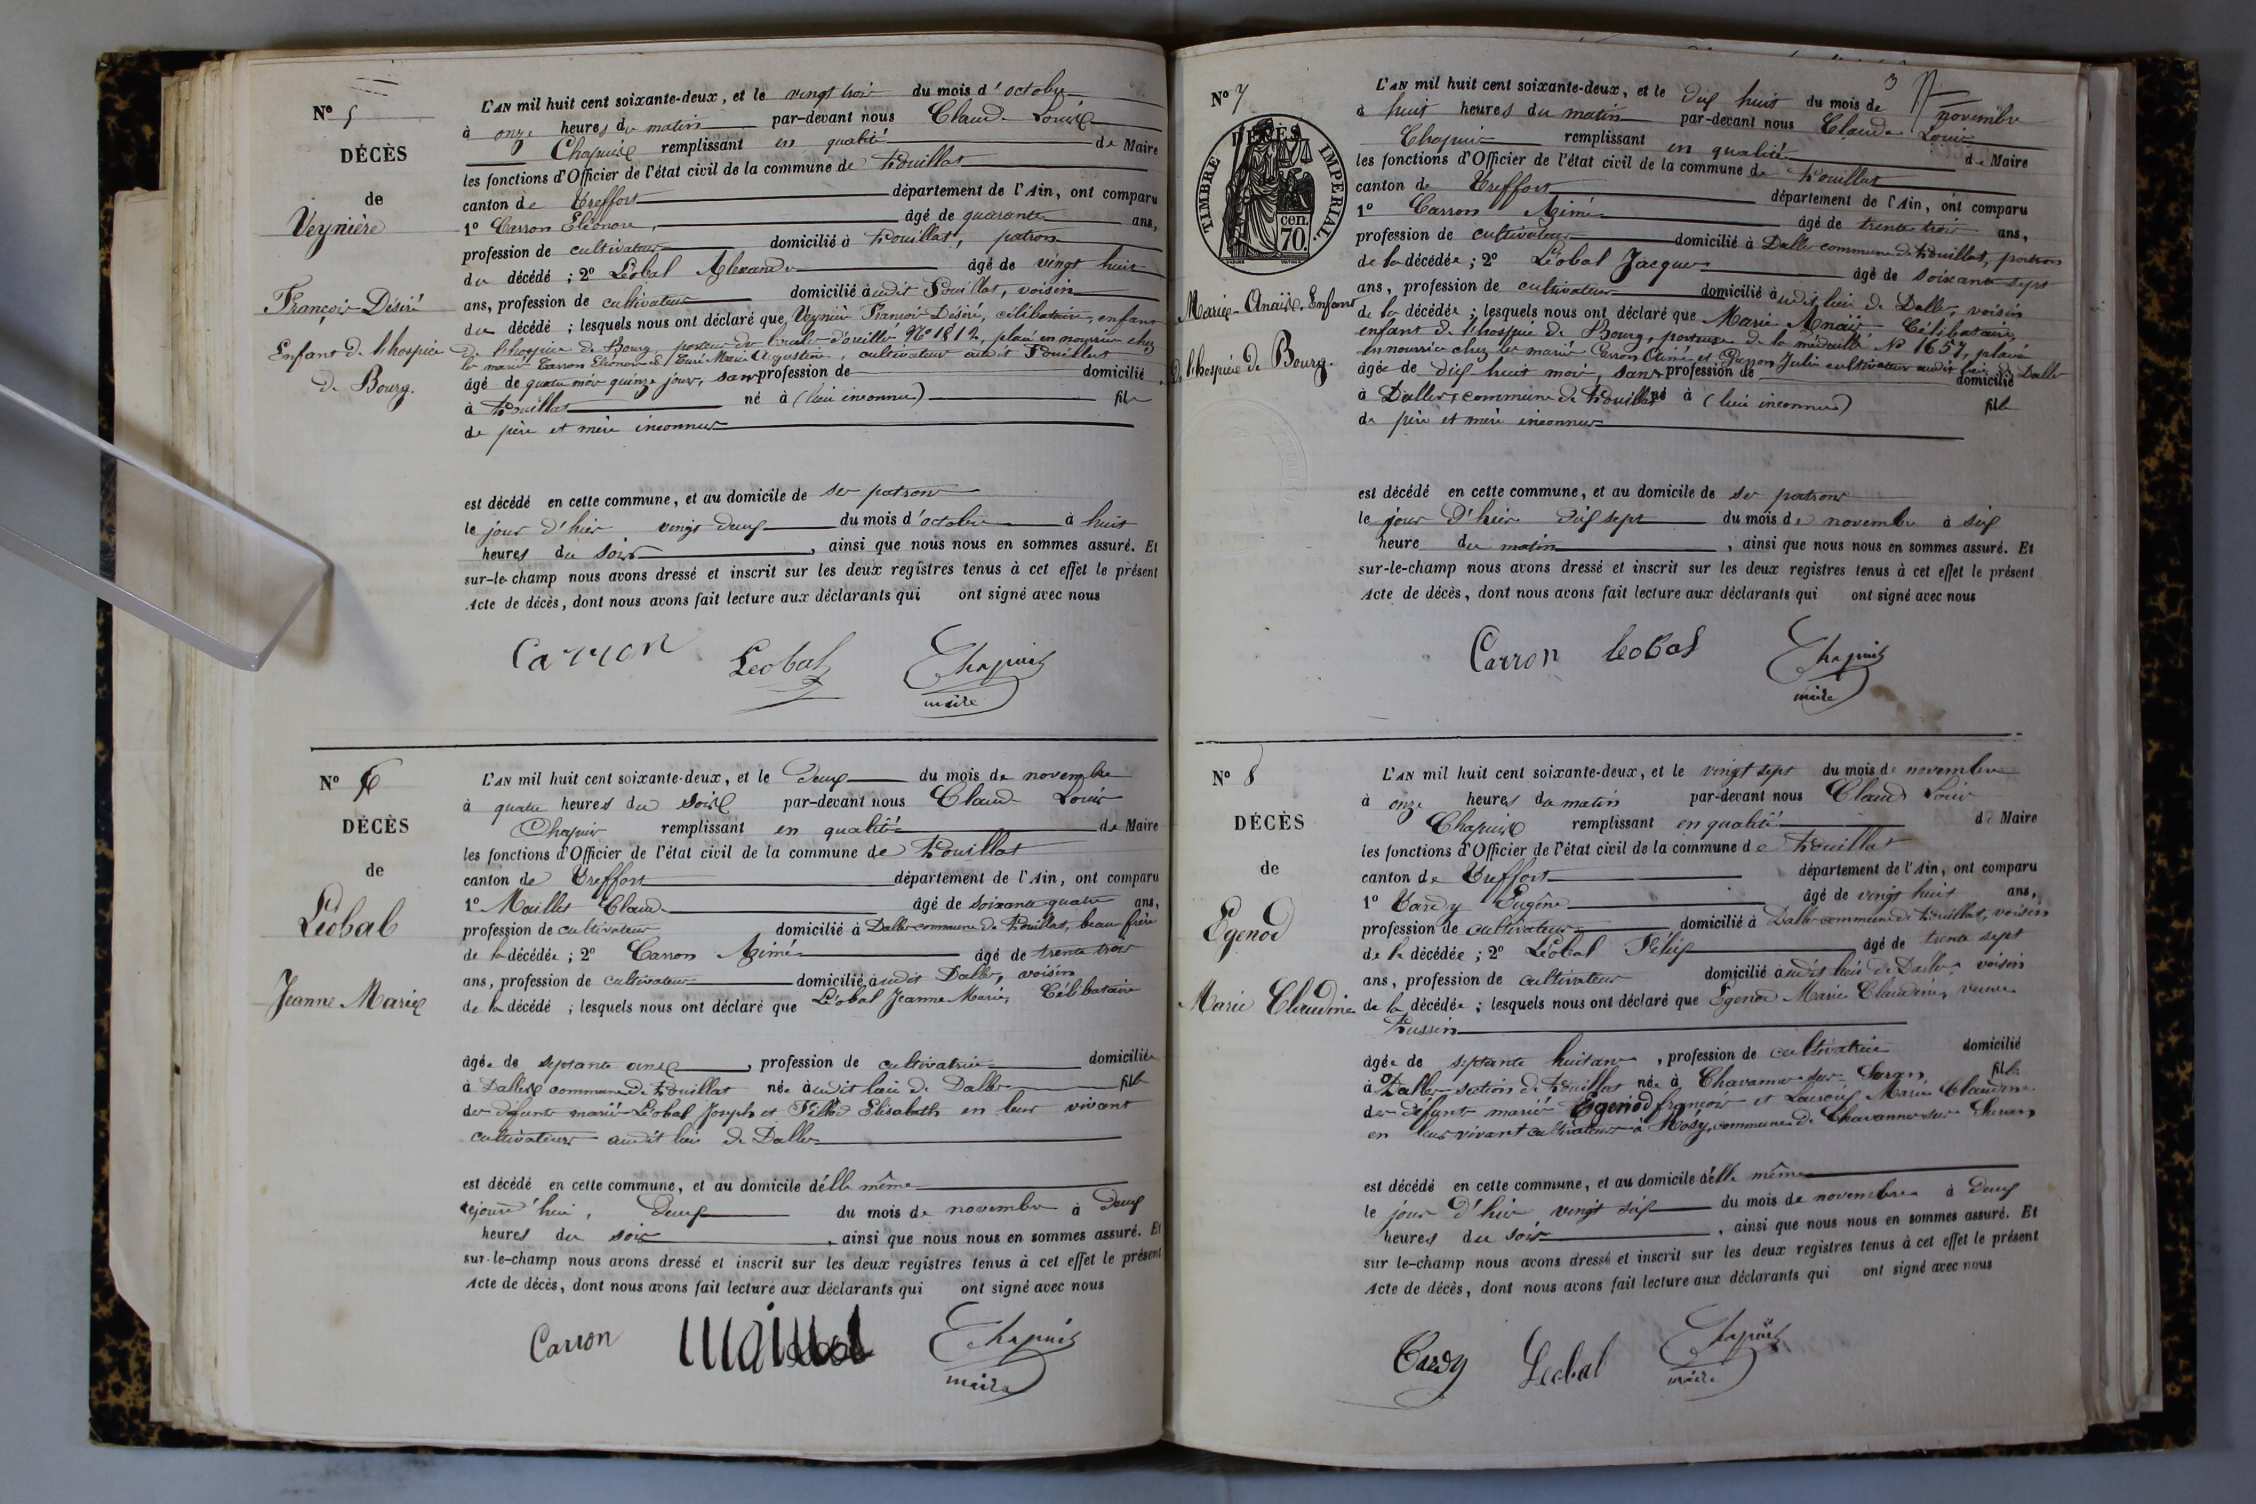 N° 5
DÉCÈS
de
Veynière
François Désiré
Enfant de l'hospice
de Bourg.
L'AN mil huit cent soixante-deux, et le vingt trois du mois d'octobre
à onze heures du matin par-devant nous Claude Louis
Chapuis remplissant en qualité de Maire
les fonctions d'Officier de l'état civil de la commune de Pouillat
canton de Treffort département de l'Ain, ont comparu
1° Carron Eléonore, âgé de quarante ans,
profession de cultivateur domicilié à Pouillat, patron
du décédé ; 2° Léobal Alexandre âgé de vingt huit
ans, profession de cultivateur domicilié audit Pouillat, voisin
du décédé ; lesquels nous ont déclaré que Veynière François Désiré, célibataire, enfant
de l'hospice de Bourg, porteur de boucle d'oreille N° 1812, placé en nourrice chez
les mariés Carron Eléonore et Marie Augustine, cultivateur audit Pouillat
âgé de quatre mois quinze jours, sans profession de domicilié
à Pouillat né à (lieu inconnu) fils
de père et mère inconnus
est décédé en cette commune, et au domicile de ses patrons
le jour d'hier vingt deux du mois d'octobre à huit
heures du soir, ainsi que nous nous en sommes assuré. Et
sur-le-champ nous avons dressé et inscrit sur les deux registres tenus à cet effet le présent
Acte de décès, dont nous avons fait lecture aux déclarants qui ont signé avec nous
Carron Léobal Chapuis
maire
N° 6
DÉCÈS
de
Léobal
Jeanne Marie
L'AN mil huit cent soixante-deux, et le deux du mois de novembre
à quatre heures du soir par-devant nous Claude Louis
Chapuis remplissant en qualité de Maire
les fonctions d'Officier de l'état civil de la commune de Pouillat
canton de Treffort département de l'Ain, ont comparu
1° Maillet Claude âgé de soixante quatre ans,
profession de cultivateur domicilié à Dalles commune de Pouillat, beau frère
de la décédée ; 2° Carron Aimé âgé de trente trois
ans, profession de cultivateur domicilié audit Dalles, voisin
de la décédé ; lesquels nous ont déclaré que Léobal Jeanne Marie, Célibataire
âgée de septante ans, profession de cultivatrice domiciliée
à Dalles commune de Pouillat née audit lieu de Dalles fille
des défunts mariés Léobal Joseph et Elisabeth en leur vivant
cultivateurs audit lieu de Dalles
est décédé en cette commune, et au domicile d'elle même
cejourd'hui, deux du mois de novembre à deux
heures du soir, ainsi que nous nous en sommes assuré. Et
sur-le-champ nous avons dressé et inscrit sur les deux registres tenus à cet effet le présent
Acte de décès, dont nous avons fait lecture aux déclarants qui ont signé avec nous
Carron Chapuis
maire
3
N° 7
DÉCÈS
TIMBRE IMPÉRIAL
70. cen.
Marie-Anaïs, Enfant
de l'hospice de Bourg.
L'AN mil huit cent soixante-deux, et le dix huit du mois de novembre
à huit heures du matin par-devant nous Claude Louis
Chapuis remplissant en qualité de Maire
les fonctions d'Officier de l'état civil de la commune de Pouillat
canton de Treffort département de l'Ain, ont comparu
1° Carron Aimé âgé de trente trois ans,
profession de cultivateur domicilié à Dalles commune de Pouillat, patron
de la décédée ; 2° Léobal Jacques âgé de soixante sept
ans, profession de cultivateur domicilié audit lieu de Dalles, voisin
de la décédée ; lesquels nous ont déclaré que Marie Anaïs, Célibataire,
enfant de l'hospice de Bourg, porteuse de la médaille N° 1657, placée
en nourrice chez les mariés Carron Aimé et Julie cultivateurs audit lieu de Dalles
âgée de dix huit mois, sans profession de domicilié
à Dalles, commune de Pouillat né à (lieu inconnu) fille
de père et mère inconnus
est décédé en cette commune, et au domicile de ses patrons
le jour d'hier dix sept du mois de novembre à six
heure du matin, ainsi que nous nous en sommes assuré. Et
sur-le-champ nous avons dressé et inscrit sur les deux registres tenus à cet effet le présent
Acte de décès, dont nous avons fait lecture aux déclarants qui ont signé avec nous
Carron Léobal Chapuis
maire
N° 8
DÉCÈS
de
Egenod
Marie Claudine
L'AN mil huit cent soixante-deux, et le vingt sept du mois de novembre
à onze heures du matin par-devant nous Claude Louis
Chapuis remplissant en qualité de Maire
les fonctions d'Officier de l'état civil de la commune de Pouillat
canton de Treffort département de l'Ain, ont comparu
1° Cardy Eugène âgé de vingt huit ans,
profession de cultivateur domicilié à Dalles commune de Pouillat, voisin
de la décédée ; 2° Léobal Félix âgé de trente sept
ans, profession de cultivateur domicilié audit lieu de Dalles, voisin
de la décédée ; lesquels nous ont déclaré que Egenod Marie Claudine, veuve
âgée de septante huit ans, profession de cultivatrice domicilié
à Dalles section de Pouillat née à Chavannes sur Suran fille
des défunts mariés Egenod françois et Marie Claudine
en leur vivant cultivateurs à Rosy, commune de Chavannes sur Suran
est décédé en cette commune, et au domicile d'elle même
le jour d'hier vingt six du mois de novembre à deux
heures du soir, ainsi que nous nous en sommes assuré. Et
sur le-champ nous avons dressé et inscrit sur les deux registres tenus à cet effet le présent
Acte de décès, dont nous avons fait lecture aux déclarants qui ont signé avec nous
Cardy Léobal Chapuis
maire